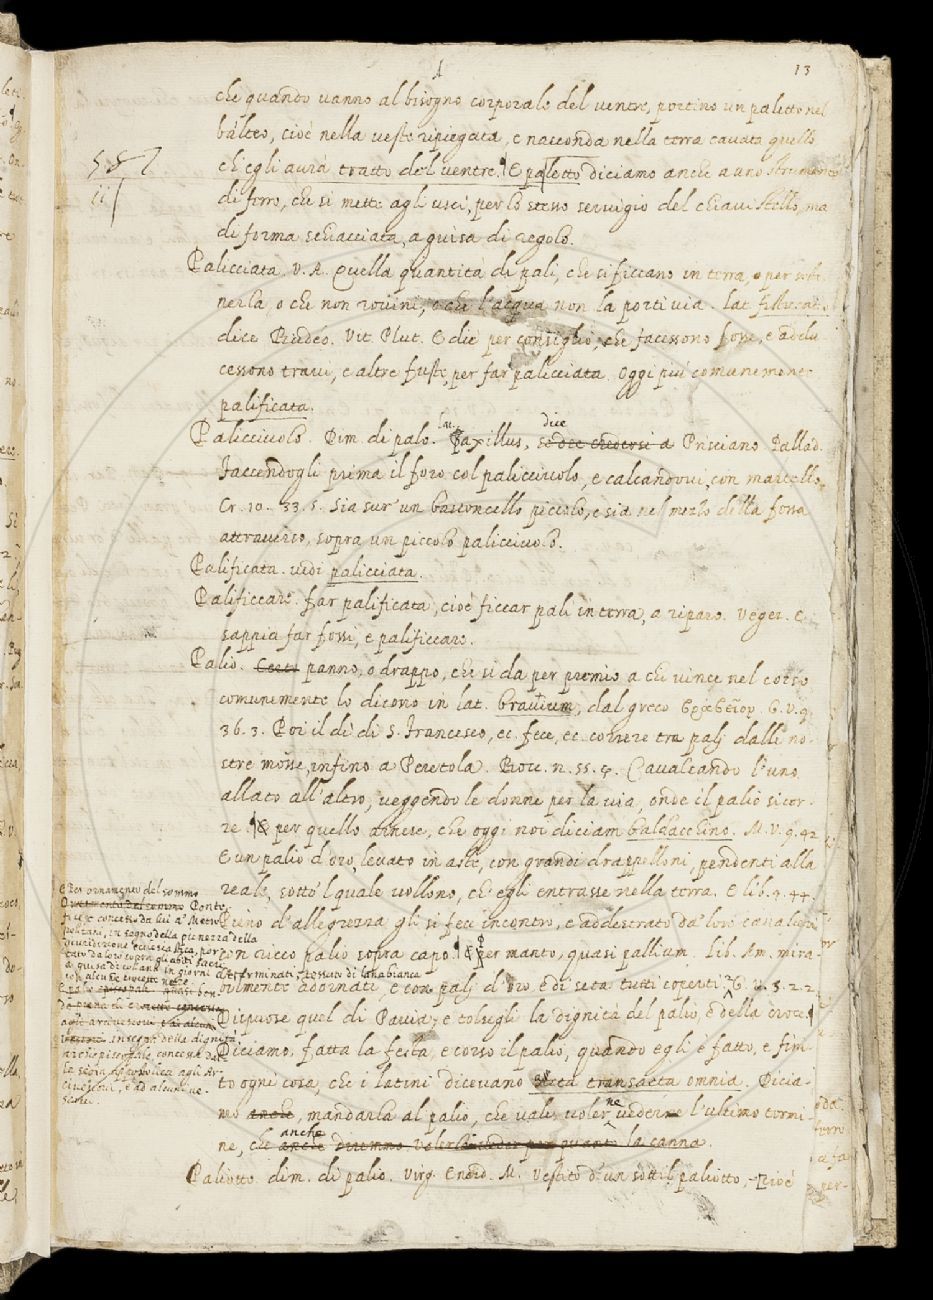 13
che quando uanno al bisogno corporale del uentre, portino un paletto nel
balteo, cioè nella ueste ripiegata, e nasconda nella terra cauata quello
ch'egli aurà tratto del uentre. E paletto diciamo anche a uno strumento
di ferro, che si mette agli usci, per lo stesso seruigio del chiauistello, ma
di forma schiacciata, a guisa di regolo.
Palicciata. V. A. Quella quantità di pali, che si ficcano in terra, o per soste
nerla, o che non rouini, o che l'acqua non la porti uia. lat.
dice Budeo. Vit. Plut. E diè per consiglio, che facessono fossi, e addu
cessono traui, e altre fuste, per far palicciata. Oggi più comunemente
palificata.
Palicciuolo. Dim. di palo. lat. Paxillus, dice se dee credersi a Prisciano Pallad.
Faccendogli prima il foro col palicciuolo, e calcandoui con martello.
Cr. 10. 33. 5. Sia sur un bastoncello piccolo, e sia nel mezzo della fossa
attrauerso, sopra un piccolo palicciuolo.
Palificata. uedi palicciata.
Palificcare. far palificata, cioè ficcar pali in terra, a riparo. Veger. E
sappia far fossi, e palificcare.
Palio. panno, o drappo, che si da per premio a chi uince nel corso
comunemente lo dicono in lat. brauium, dal greco βραβεῖον G. V. 9.
36. 3. Poi il dì di S. Francesco, ec. fece, ec. correre tra palj dalle no-
stre mosse, infino a Peretola. Bocc. n. 55. 4. Caualcando l'uno
allato all'altro, ueggendo le donne per la uia, onde il palio si cor-
re. E per quello arnese, che oggi noi diciam baldacchino. M. V. 9. 42
E un palio d'oro, leuato in aste, con grandi drappelloni, pendenti alla
reale, sotto 'l quale uollono, ch'egli entrasse nella terra. E lib. 9. 44.
Pieno d'allegrezza gli si feci incontro, e addestrato da' loro caualieri
con ricco palio sopra capo. E per manto, quasi pallium. Lib. Am. mira-
bilmente adornati, e con palj d'oro e di seta tutti coperti. G. V. 5. 2. 2
Dispuose quel di Pauia, e tolsegli la dignità del palio, e della croce.
Diciamo, fatta la festa, e corso il palio, quando egli è fatto, e fini
to ogni cosa, che i latini diceuano acta transacta omnia. Dicia-
mo anche, mandarla al palio, che uale uolerne uedere l'ultimo termi
ne, che anche diremmo la canna.
Paliotto. dim. di palio. Virg. Eneid. M. Vestito d'un sottil paliotto, cioè
E Per ornamento del sommo
Ponte,
fice concesso da lui a' Metro
politani, in segno della pienezza della
giuridizione ecclesiastica, por
tato da loro sopra gli abiti sacri
a guisa di collana in giorni determinati tessuto di lana bianca
con alcune crocette nere
in segno della dignità
archiepiscopale, concessa dal
la sedia apostolica agli Ar
ciuescoui, e ad alcuni ue-
scoui.